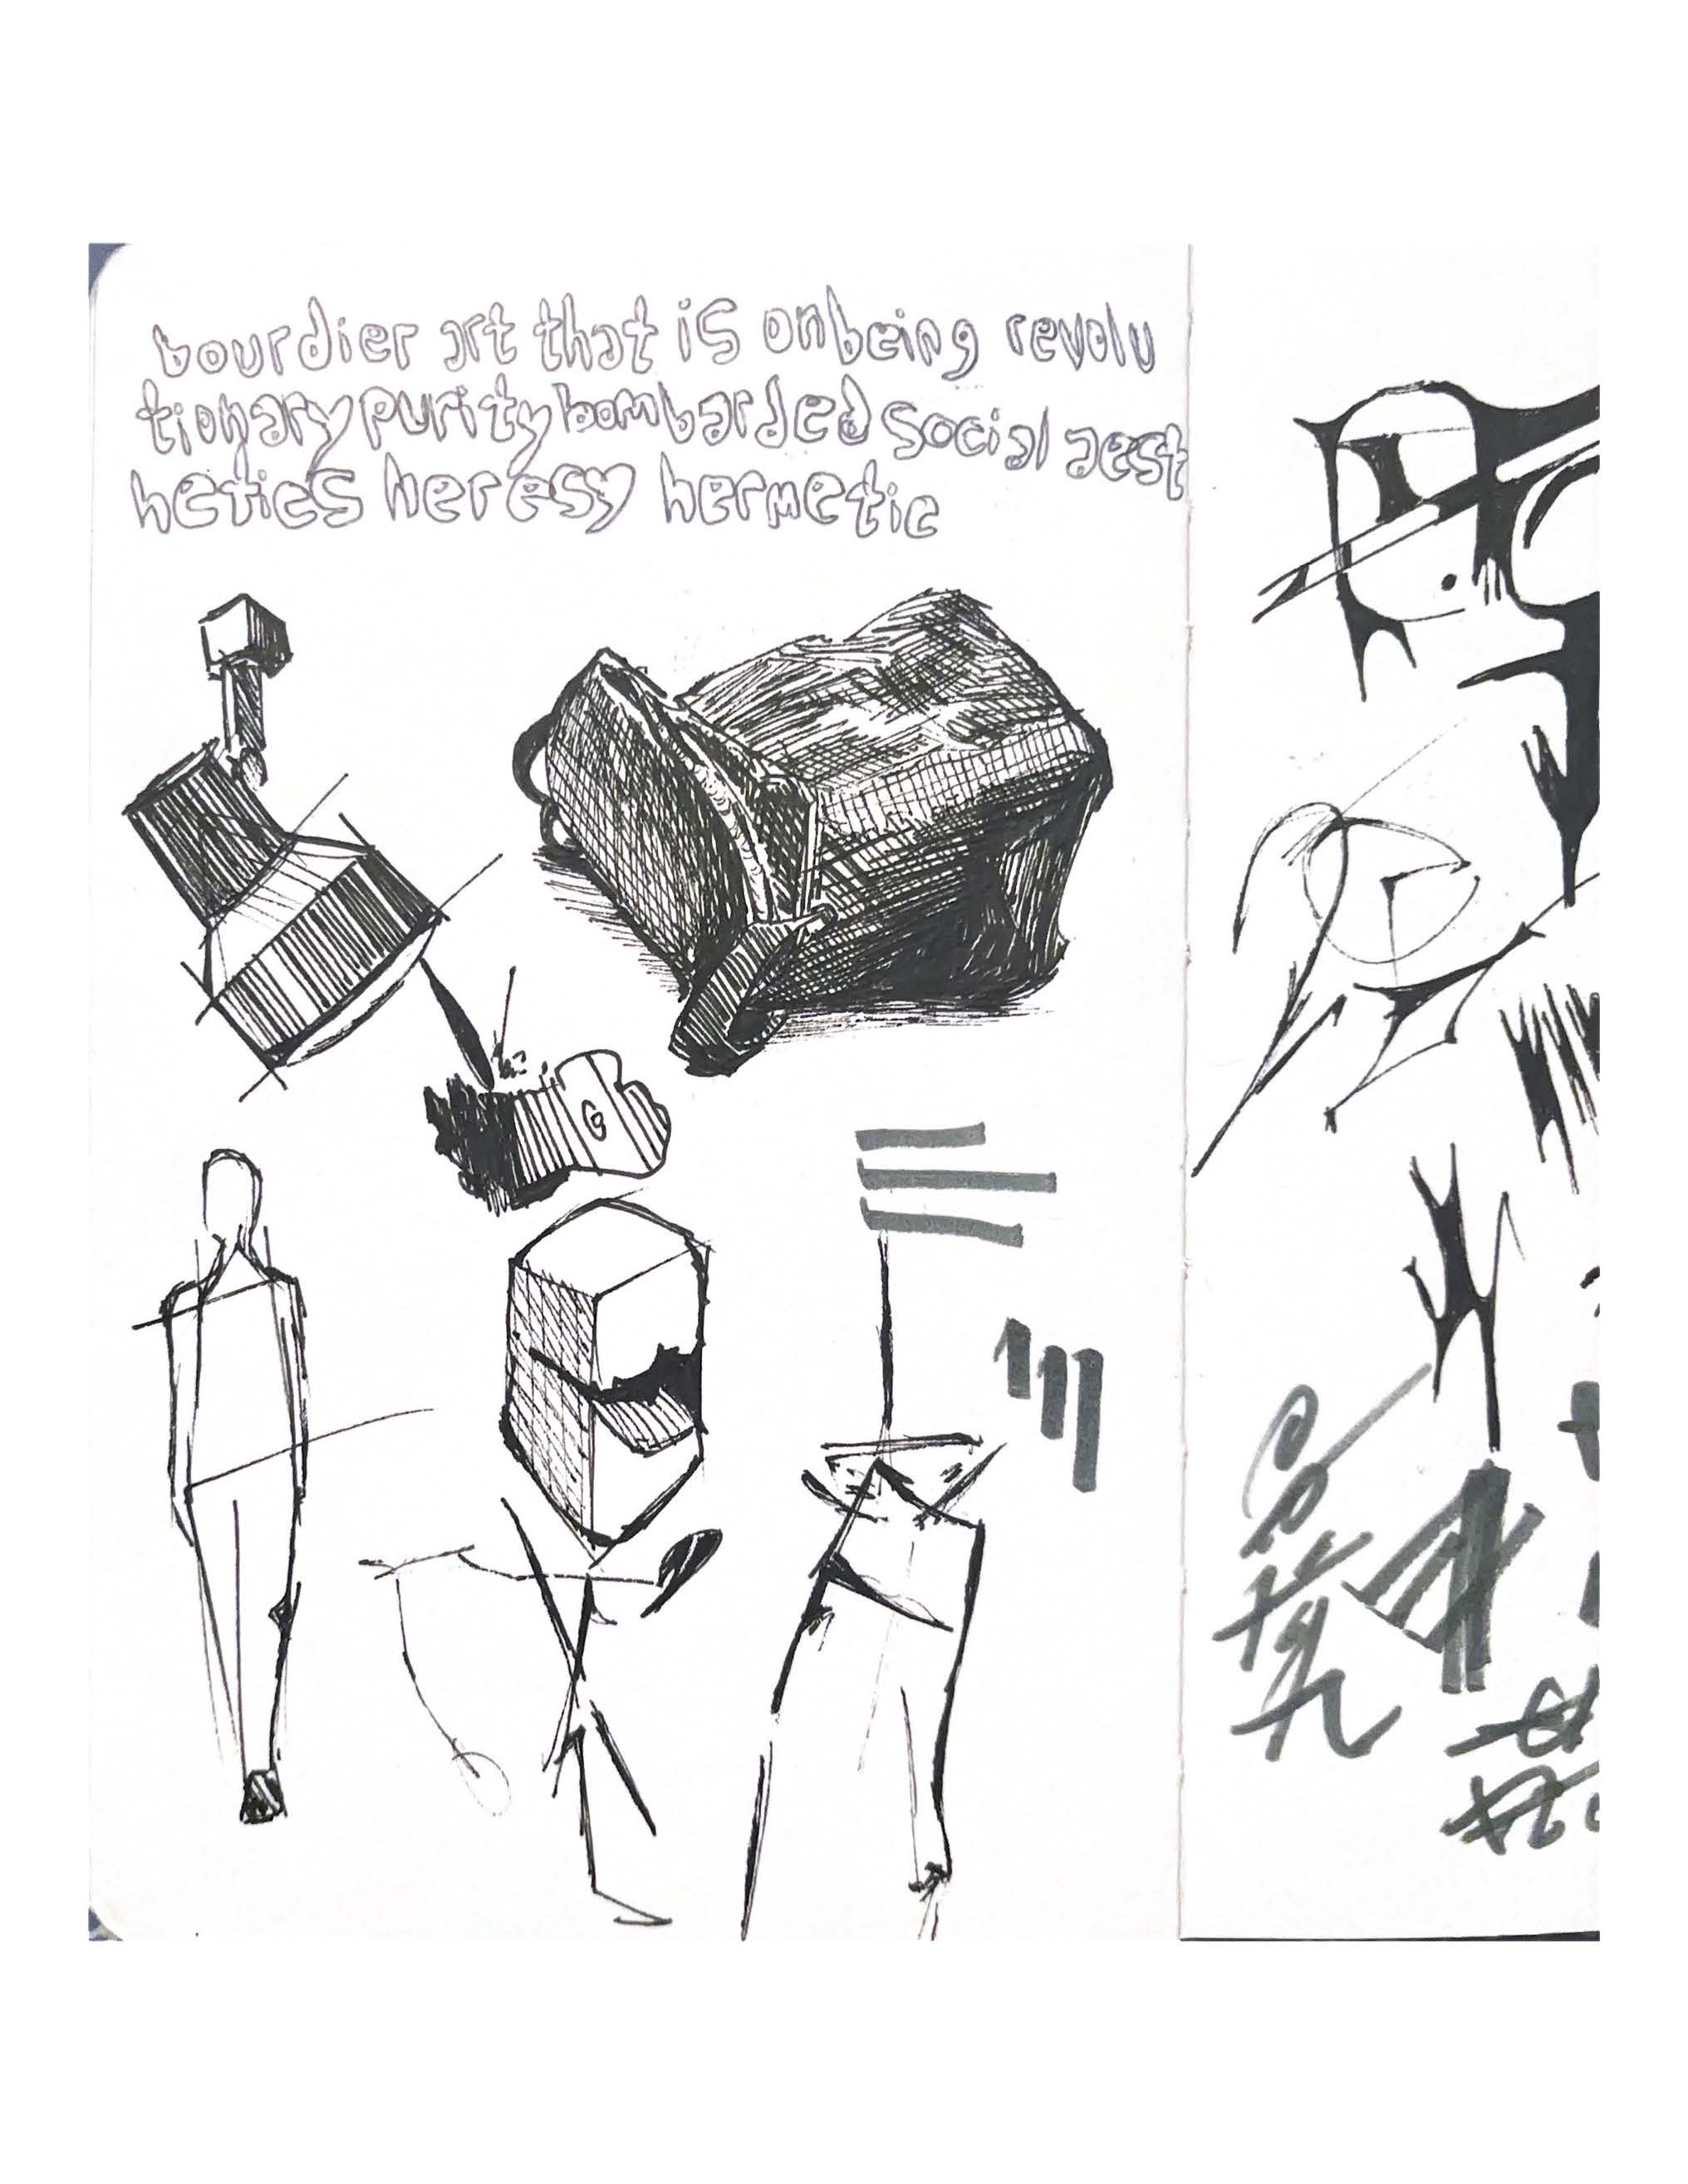 bourdier art that is on being revolu
tionary purity bombarded social aest
hetics heresy hermetic
G